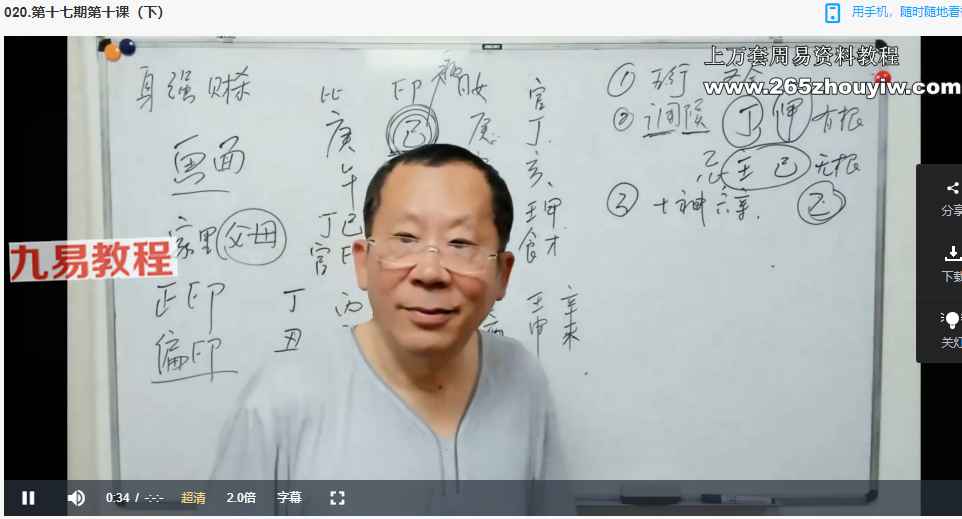 020.第十七期第十课（下）
用手机，随时随地看
上万套周易资料教程
www.265zhouyiw.com
身强 财杀
比 印 官
庚 己 丁
午 亥
丁己 壬甲
官印 食才
① 五行
② 调候 丁 甲 有根
忌 壬 己 无根
③ 十神
家里 父母
九易教程
正印
偏印
丁 丙 壬 辛
丑 申 未
分享
下载
关灯
0:34 / -:-:-
超清
2.0倍
字幕